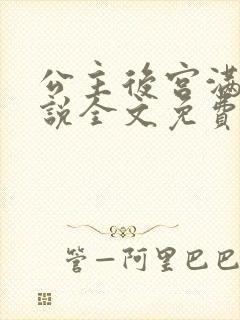 公主後宮滿
說全文免費
管—阿里巴巴